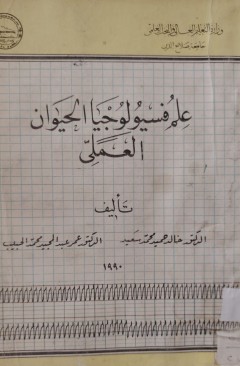 وزارة التعليم العالي والبحث العلمي
جامعة صلاح الدين
علم فسيولوجيا الحيوان
العملي
تأليف
الدكتور خالد حميد محمد سعيد الدكتور عمر عبد المجيد محمد الحبيب
١٩٩٠